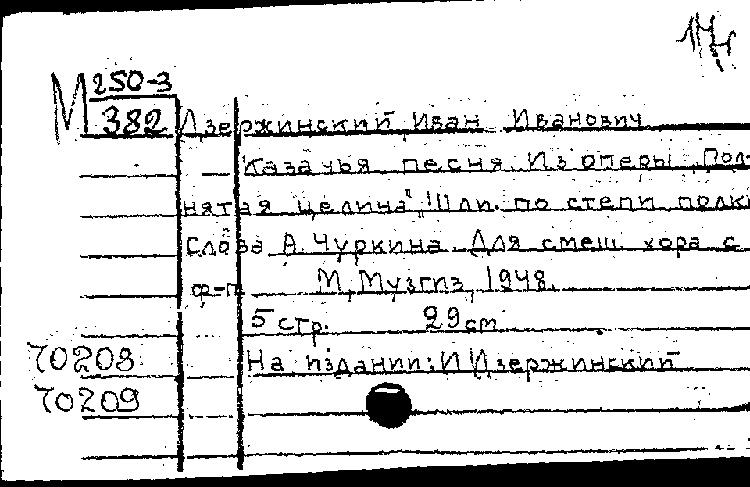 М 250-3
382
Дзержинский Иван Иванович
Казачья песня. Из оперы „Под-
нятая целина". Шли по степи полки
Слова А. Чуркина. Для смеш. хора с
ф-п. М, Музгиз, 1948.
5 стр. 29 cm
70208 На издании: И Дзержинский
70209